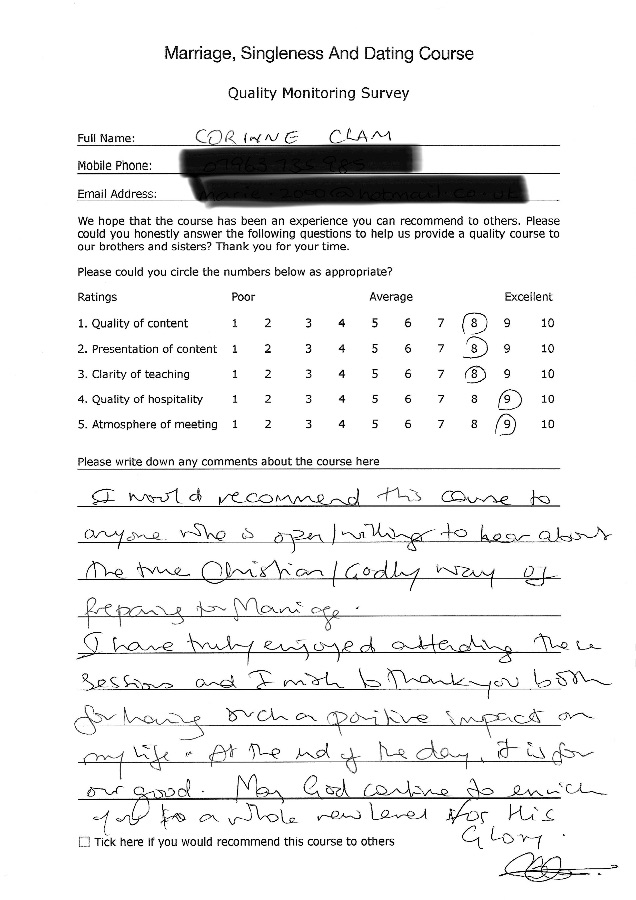 Marriage, Singleness And Dating Course
Quality Monitoring Survey
Full Name: CORINNE CLAM
Mobile Phone:
Email Address:
We hope that the course has been an experience you can recommend to others. Please
could you honestly answer the following questions to help us provide a quality course to
our brothers and sisters? Thank you for your time.
Please could you circle the numbers below as appropriate?
Ratings Poor Average Excellent
1. Quality of content 1 2 3 4 5 6 7 8 9 10
2. Presentation of content 1 2 3 4 5 6 7 8 9 10
3. Clarity of teaching 1 2 3 4 5 6 7 8 9 10
4. Quality of hospitality 1 2 3 4 5 6 7 8 9 10
5. Atmosphere of meeting 1 2 3 4 5 6 7 8 9 10
Please write down any comments about the course here
I would recommend this course to
anyone who is open/willing to hear about
the true Christian/Godly way of
preparing for Marriage.
I have truly enjoyed attending these
sessions and I wish to thank you both
for having such a positive impact on
my life. At the end of the day, it is for
our good. May God continue to enrich
you to a whole new level for His
Glory.
Tick here if you would recommend this course to others